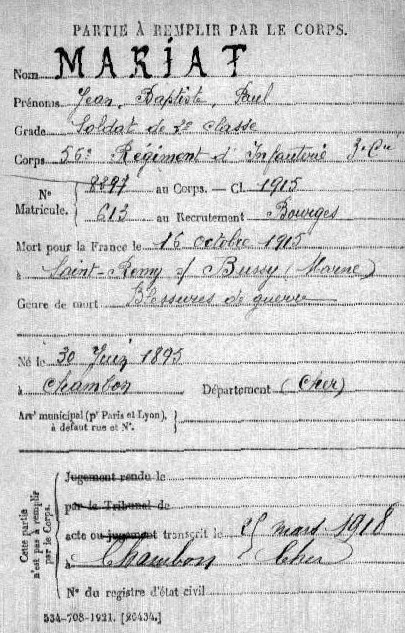 PARTIE À REMPLIR PAR LE CORPS.
Nom MARIAT
Prénoms Jean, Baptiste, Paul
Grade Soldat de 2e classe
Corps 56e Régiment d'Infanterie 3e Cie
No Matricule. 8897 au Corps. — Cl. 1915
613 au Recrutement Bourges
Mort pour la France le 16 octobre 1915
à Saint-Remy s/ Bussy (Marne)
Genre de mort Blessures de guerre
Né le 30 Juin 1895
à Chambon Département (Cher)
Arrt municipal (pr Paris et Lyon),
à défaut rue et No.
Cette partie n'est pas à remplir par le Corps.
Jugement rendu le
par le Tribunal de
acte ou jugement transcrit le mars 1918
à Chambon Cher
No du registre d'état civil
534-708-1921. [26434.]